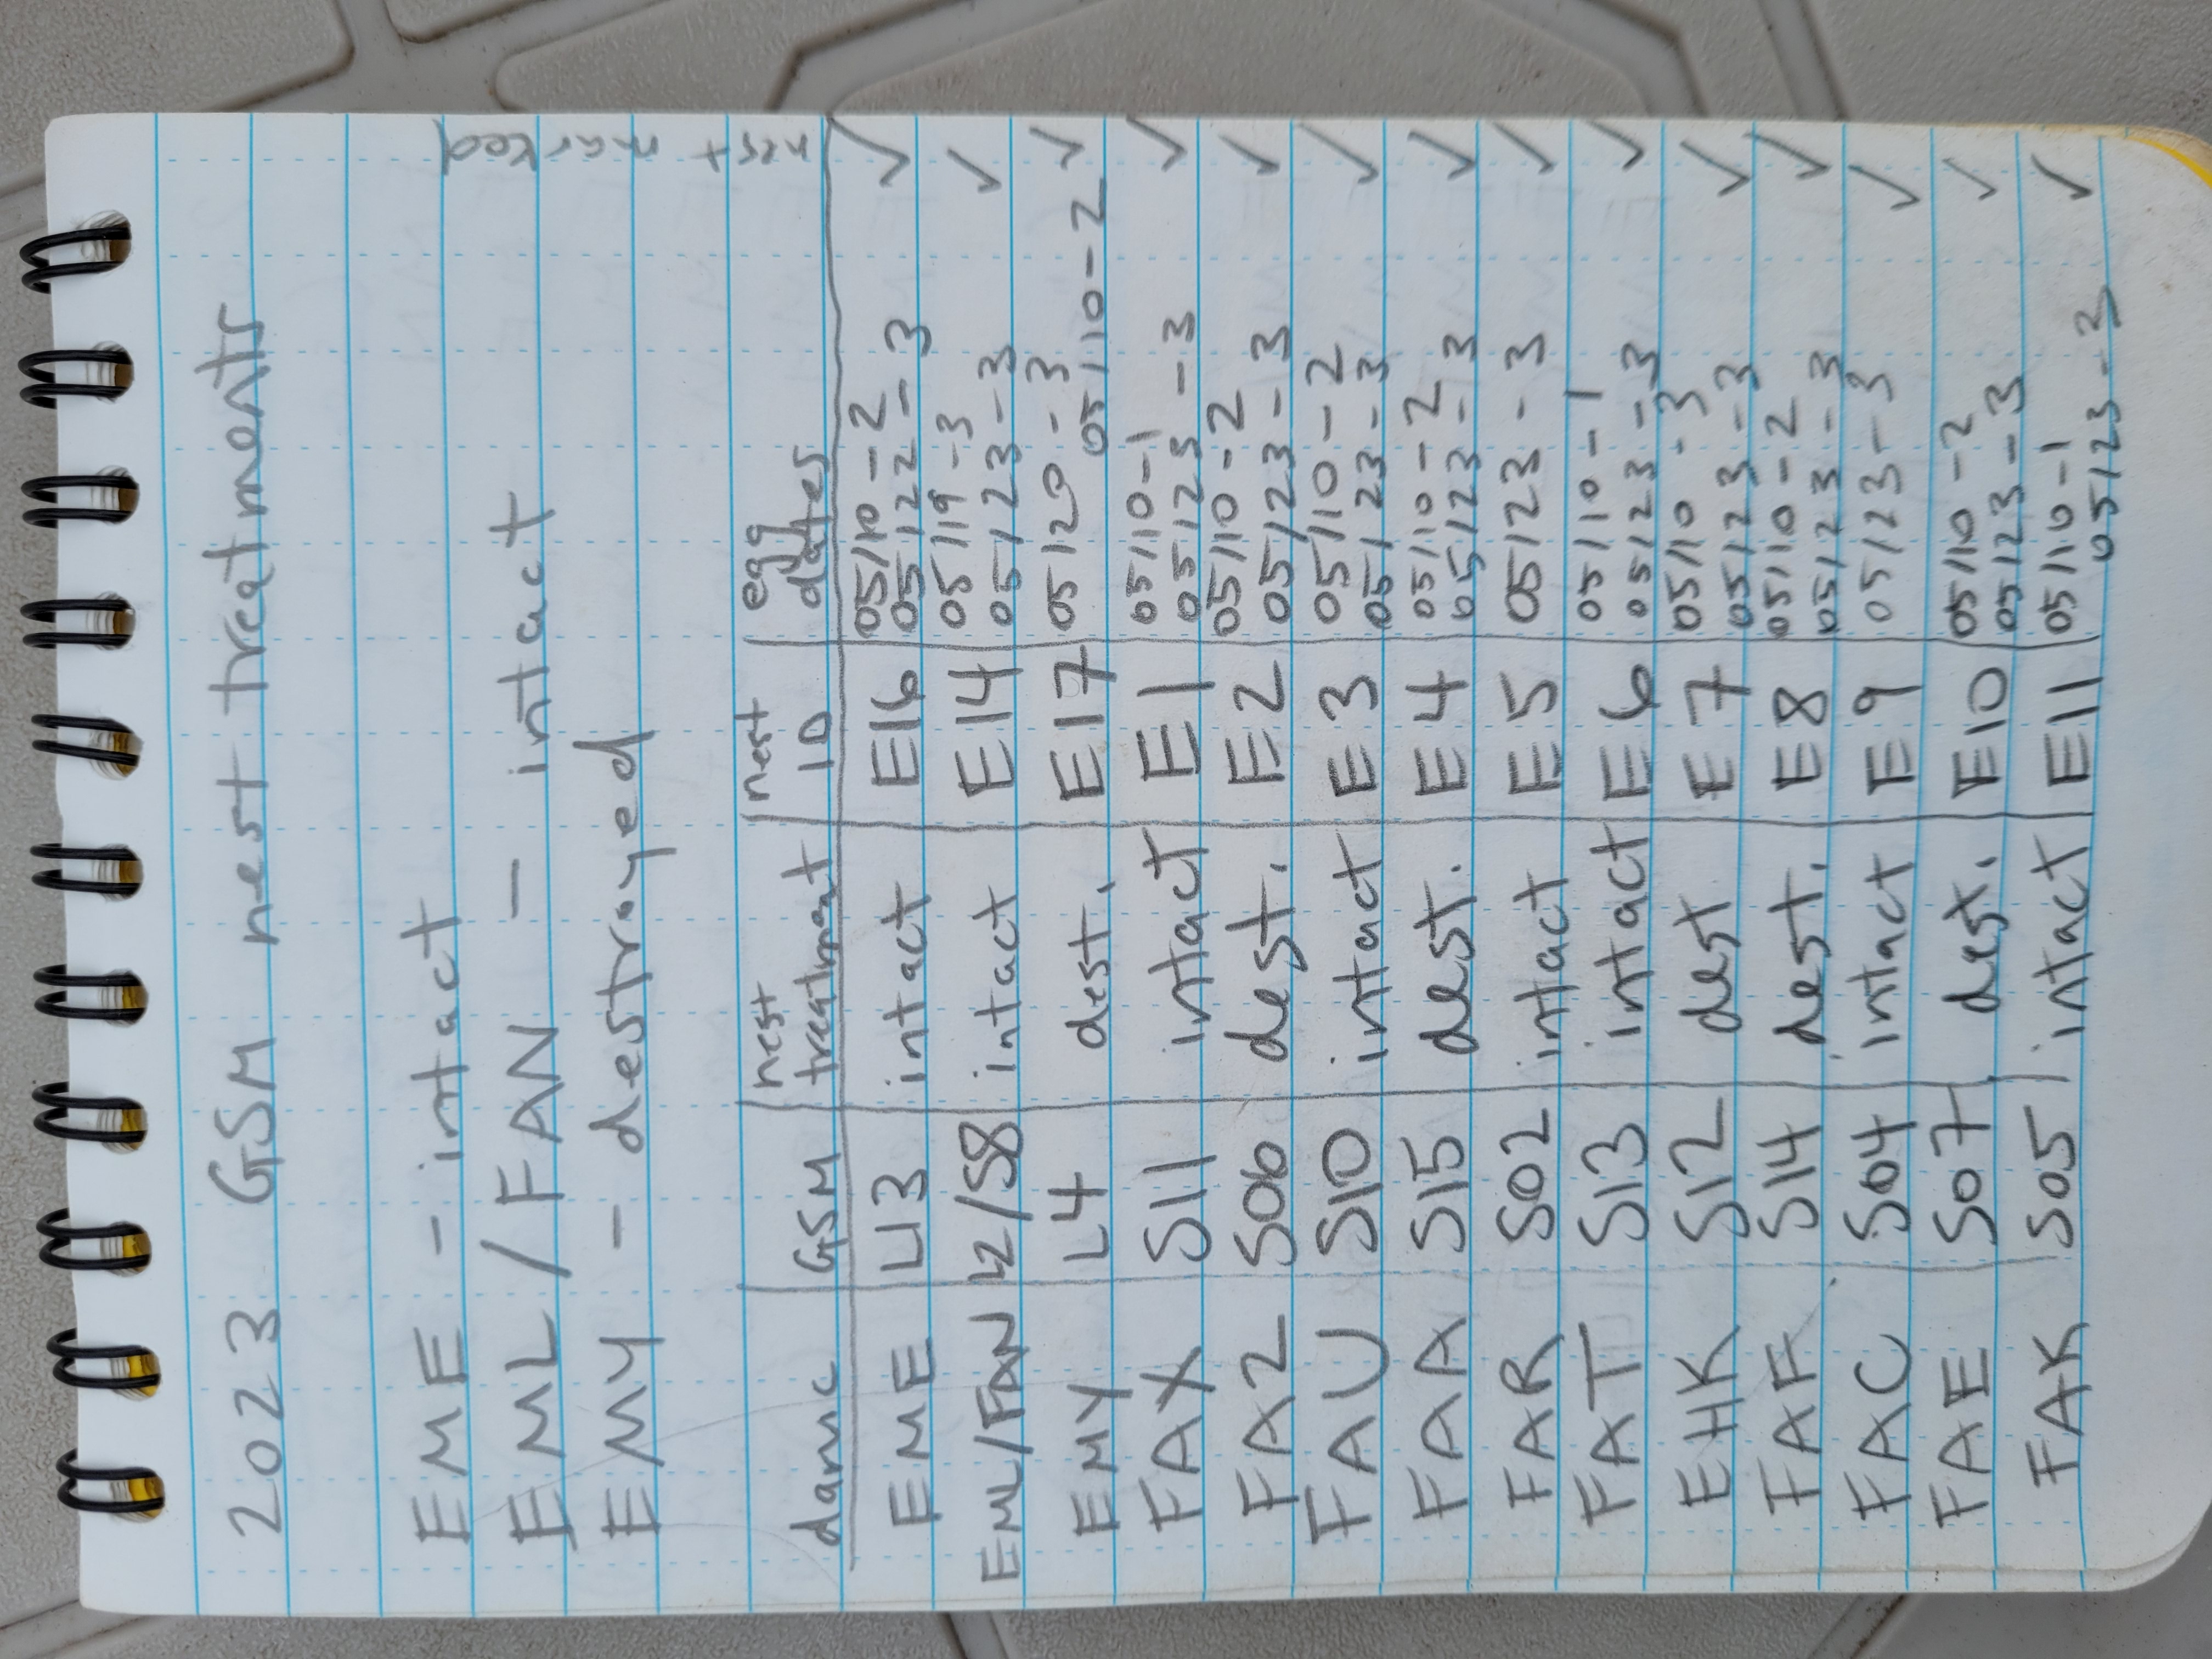 2023 GSM nest treatments
EME - intact
EML/FAN - intact
EMY - destroyed
nest marked
damic GSM nest treatment nest ID egg dates
EME L13 intact E16 05/10 - 2
05/22 - 3 ✓
EML/FAN L2/S8 intact E14 05/19 - 3
05/23 - 3 ✓
EMY L4 dest. E17 05/20 - 3
05/10 - 2 ✓
FAX S11 intact E1 05/10 - 1
05/23 - 3 ✓
FA2 S06 dest. E2 05/10 - 2
05/23 - 3 ✓
FAU S10 intact E3 05/10 - 2
05/23 - 3 ✓
FAA S15 dest. E4 05/10 - 2
05/23 - 3 ✓
FAR S02 intact E5 05/23 - 3 ✓
FAT S13 intact E6 05/10 - 1
05/23 - 3 ✓
EHK S12 dest E7 05/10 - 3
05/23 - 3 ✓
FAF S14 dest. E8 05/10 - 2
05/23 - 3 ✓
FAC S04 intact E9 05/23 - 3 ✓
FAE S07 dest. E10 05/10 - 2
05/23 - 3 ✓
FAK S05 intact E11 05/10 - 1
05/23 - 3 ✓